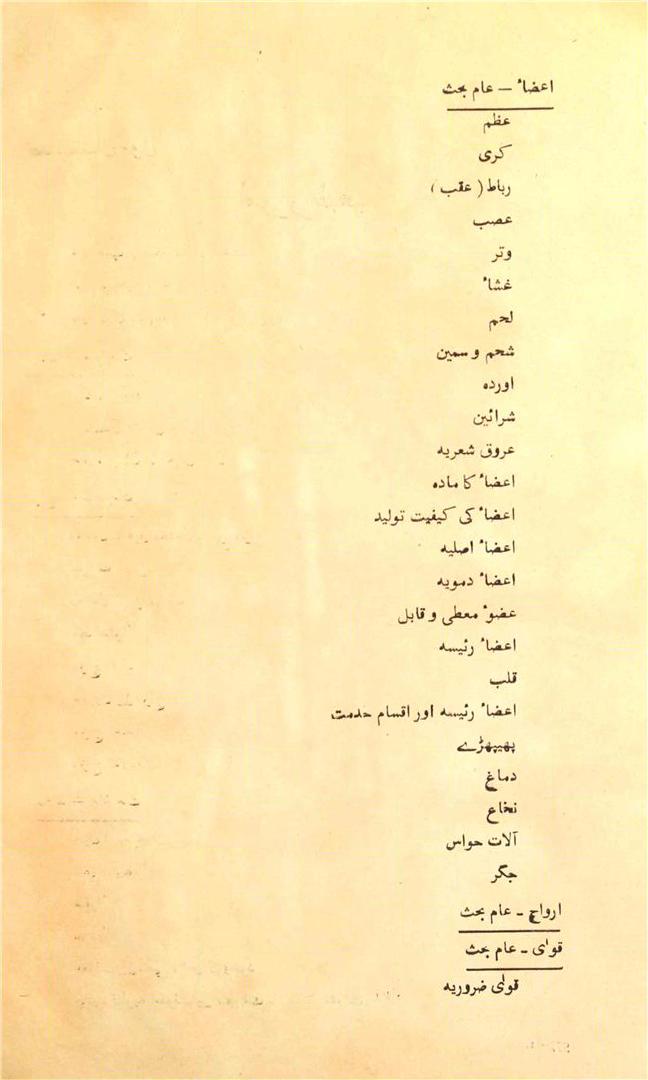 اعضاٴ – عام بحث
عظم
کری
رباط ( عقب )
عصب
وتر
غشاٴ
لحم
شحم و سمین
اورده
شرائین
عروق شعریه
اعضاٴ کا ماده
اعضاٴ کی کیفیت تولید
اعضاٴ اصلیه
اعضاٴ دمویه
عضوٴ معطی و قابل
اعضاٴ رئیسه
قلب
اعضاٴ رئیسه اور اقسام خدمت
پھیپھڑے
دماغ
نخاع
آلات حواس
جگر
ارواح - عام بحث
قوای - عام بحث
قوای ضروریه